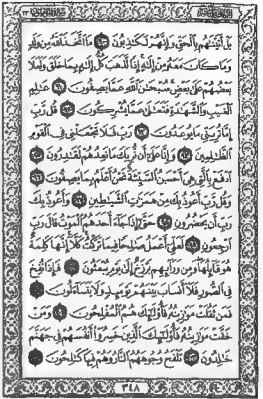 بَلْ أَتَيْنَٰهُم بِٱلْحَقِّ وَإِنَّهُمْ لَكَٰذِبُونَ ٩٠ مَا ٱتَّخَذَ ٱللَّهُ مِن وَلَدٍ
وَمَا كَانَ مَعَهُۥ مِنْ إِلَٰهٍ إِذًا لَّذَهَبَ كُلُّ إِلَٰهٍۭ بِمَا خَلَقَ وَلَعَلَا
بَعْضُهُمْ عَلَىٰ بَعْضٍ سُبْحَٰنَ ٱللَّهِ عَمَّا يَصِفُونَ ٩١ عَٰلِمِ
ٱلْغَيْبِ وَٱلشَّهَٰدَةِ فَتَعَٰلَىٰ عَمَّا يُشْرِكُونَ ٩٢ قُل رَّبِّ
إِمَّا تُرِيَنِّى مَا يُوعَدُونَ ٩٣ رَبِّ فَلَا تَجْعَلْنِى فِى ٱلْقَوْمِ
ٱلظَّٰلِمِينَ ٩٤ وَإِنَّا عَلَىٰٓ أَن نُّرِيَكَ مَا نَعِدُهُمْ لَقَٰدِرُونَ ٩٥
ٱدْفَعْ بِٱلَّتِى هِىَ أَحْسَنُ ٱلسَّيِّئَةَ نَحْنُ أَعْلَمُ بِمَا يَصِفُونَ ٩٦
وَقُل رَّبِّ أَعُوذُ بِكَ مِنْ هَمَزَٰتِ ٱلشَّيَٰطِينِ ٩٧ وَأَعُوذُ بِكَ
رَبِّ أَن يَحْضُرُونِ ٩٨ حَتَّىٰٓ إِذَا جَآءَ أَحَدَهُمُ ٱلْمَوْتُ قَالَ رَبِّ
ٱرْجِعُونِ ٩٩ لَعَلِّىٓ أَعْمَلُ صَٰلِحًا فِيمَا تَرَكْتُ كَلَّآ إِنَّهَا كَلِمَةٌ
هُوَ قَآئِلُهَا وَمِن وَرَآئِهِم بَرْزَخٌ إِلَىٰ يَوْمِ يُبْعَثُونَ ١٠٠ فَإِذَا نُفِخَ
فِى ٱلصُّورِ فَلَآ أَنسَابَ بَيْنَهُمْ يَوْمَئِذٍ وَلَا يَتَسَآءَلُونَ ١٠١
فَمَن ثَقُلَتْ مَوَٰزِينُهُۥ فَأُو۟لَٰٓئِكَ هُمُ ٱلْمُفْلِحُونَ ١٠٢ وَمَنْ
خَفَّتْ مَوَٰزِينُهُۥ فَأُو۟لَٰٓئِكَ ٱلَّذِينَ خَسِرُوٓا۟ أَنفُسَهُمْ فِى جَهَنَّمَ
خَٰلِدُونَ ١٠٣ تَلْفَحُ وُجُوهَهُمُ ٱلنَّارُ وَهُمْ فِيهَا كَٰلِحُونَ ١٠٤
٣٤٨